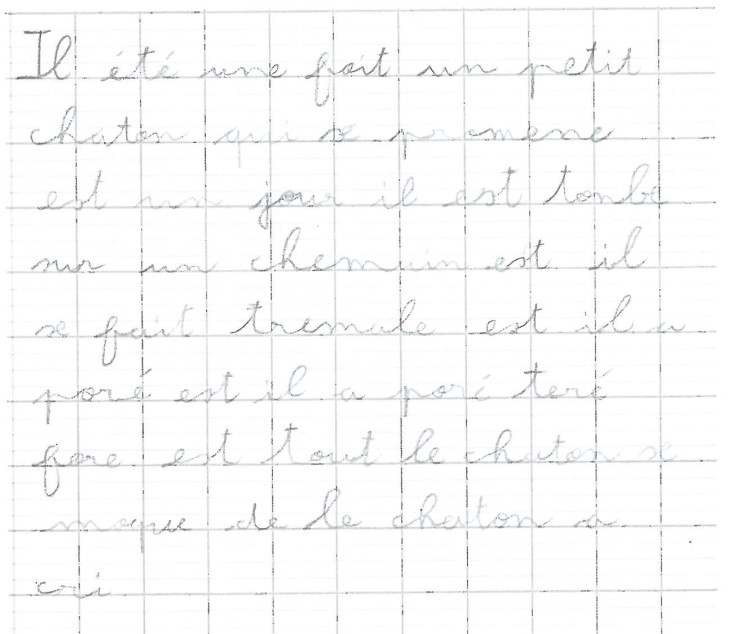 Il été une foit un petit
chaton qui se promene
est un jour il est tonbé
sur un chemuin est il
se fait tremale est il a
poré est il a poré teré
fore est tout le chaton se
moque de le chaton a
cri